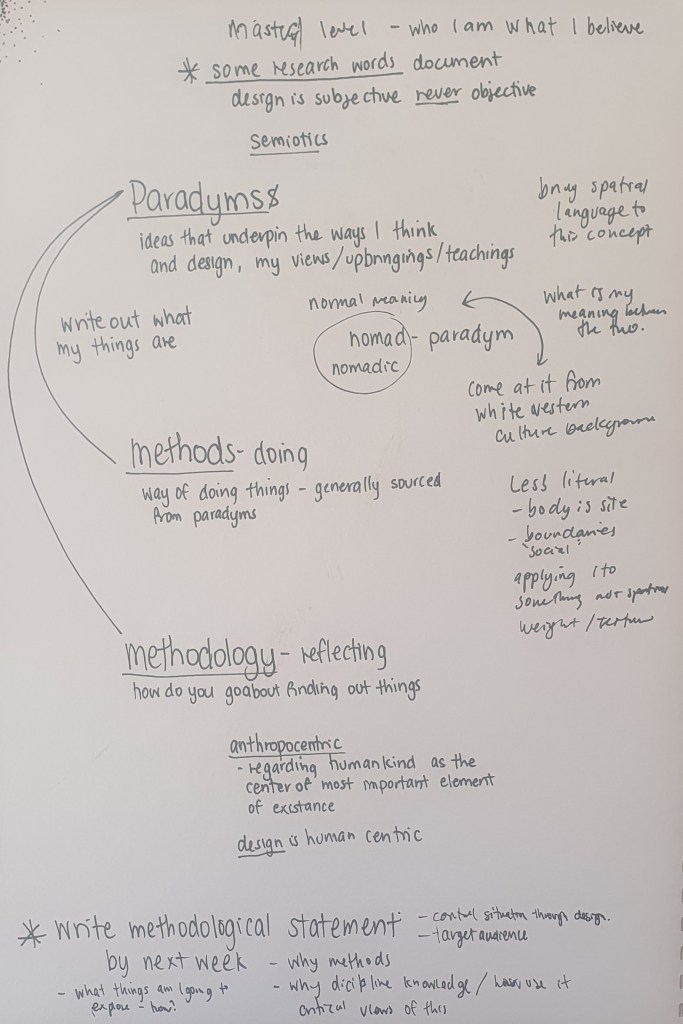 Masters level - who I am what I believe
* some research words document
design is subjective never objective
semiotics
Paradyms
ideas that underpin the ways I think
and design, my views/upbringings/teachings
bring spatial
language to
this concept
write out what
my things are
normal meaning
nomad - paradym
nomadic
what is my
meaning between
the two.
come at it from
white western
culture background
methods - doing
way of doing things - generally sourced
from paradyms
Less literal
- body is site
- boundaries
"social"
applying it to
something not spatial
weight / texture
methodology - reflecting
how do you goabout finding out things
anthropocentric
- regarding humankind as the
center of most important element
of existance
design is human centric
* write methodological statement
by next week
- control situation through design.
- target audience
- why methods
- why dicipline knowledge / use it
critical views of this
- what things am I going to
expose - how?